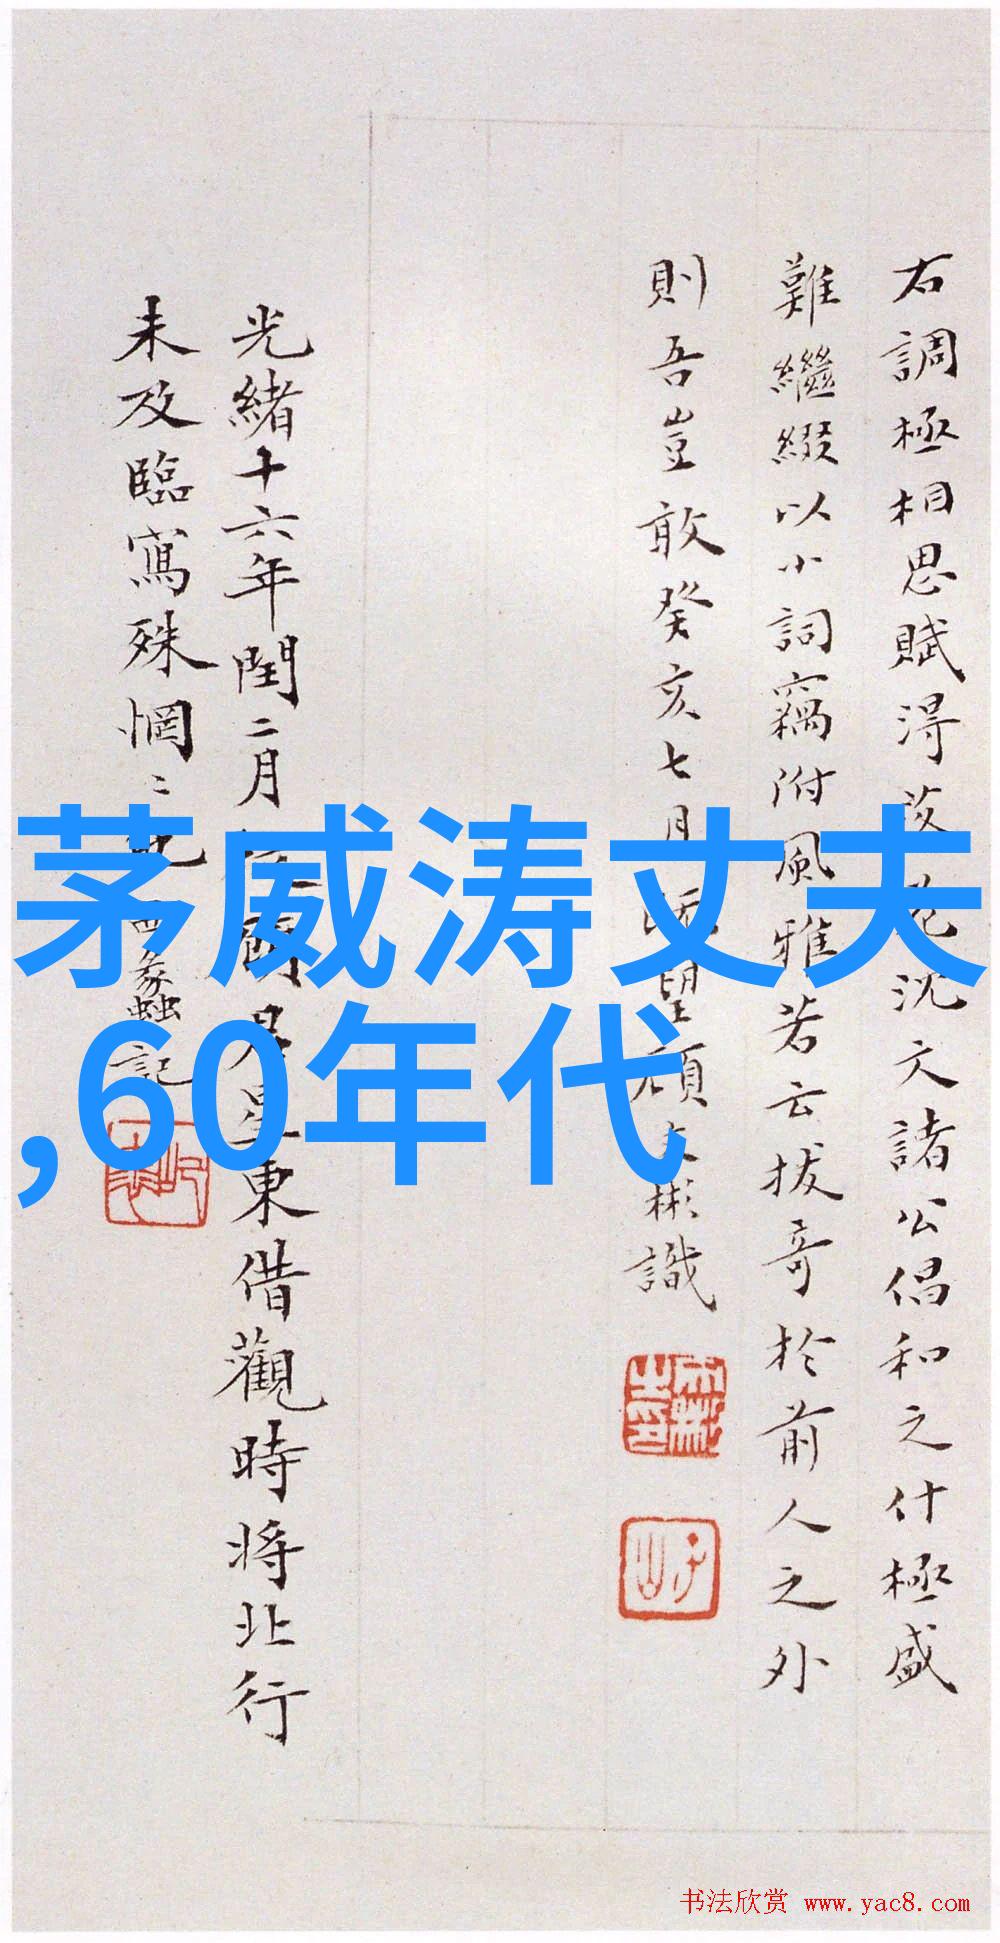 右調極相思賦得落花沈文諸公倡和之什極盛
難繼綴以小詞竊附風雅若云拔奇於前人之外
則吾豈敢癸亥七月既望顧文彬識
光緒十六年閏二月 星東借觀時將北行
未及臨寫殊惘〻記 蟊記
茅威涛丈夫
,60年代
书法欣赏 www.yac8.com